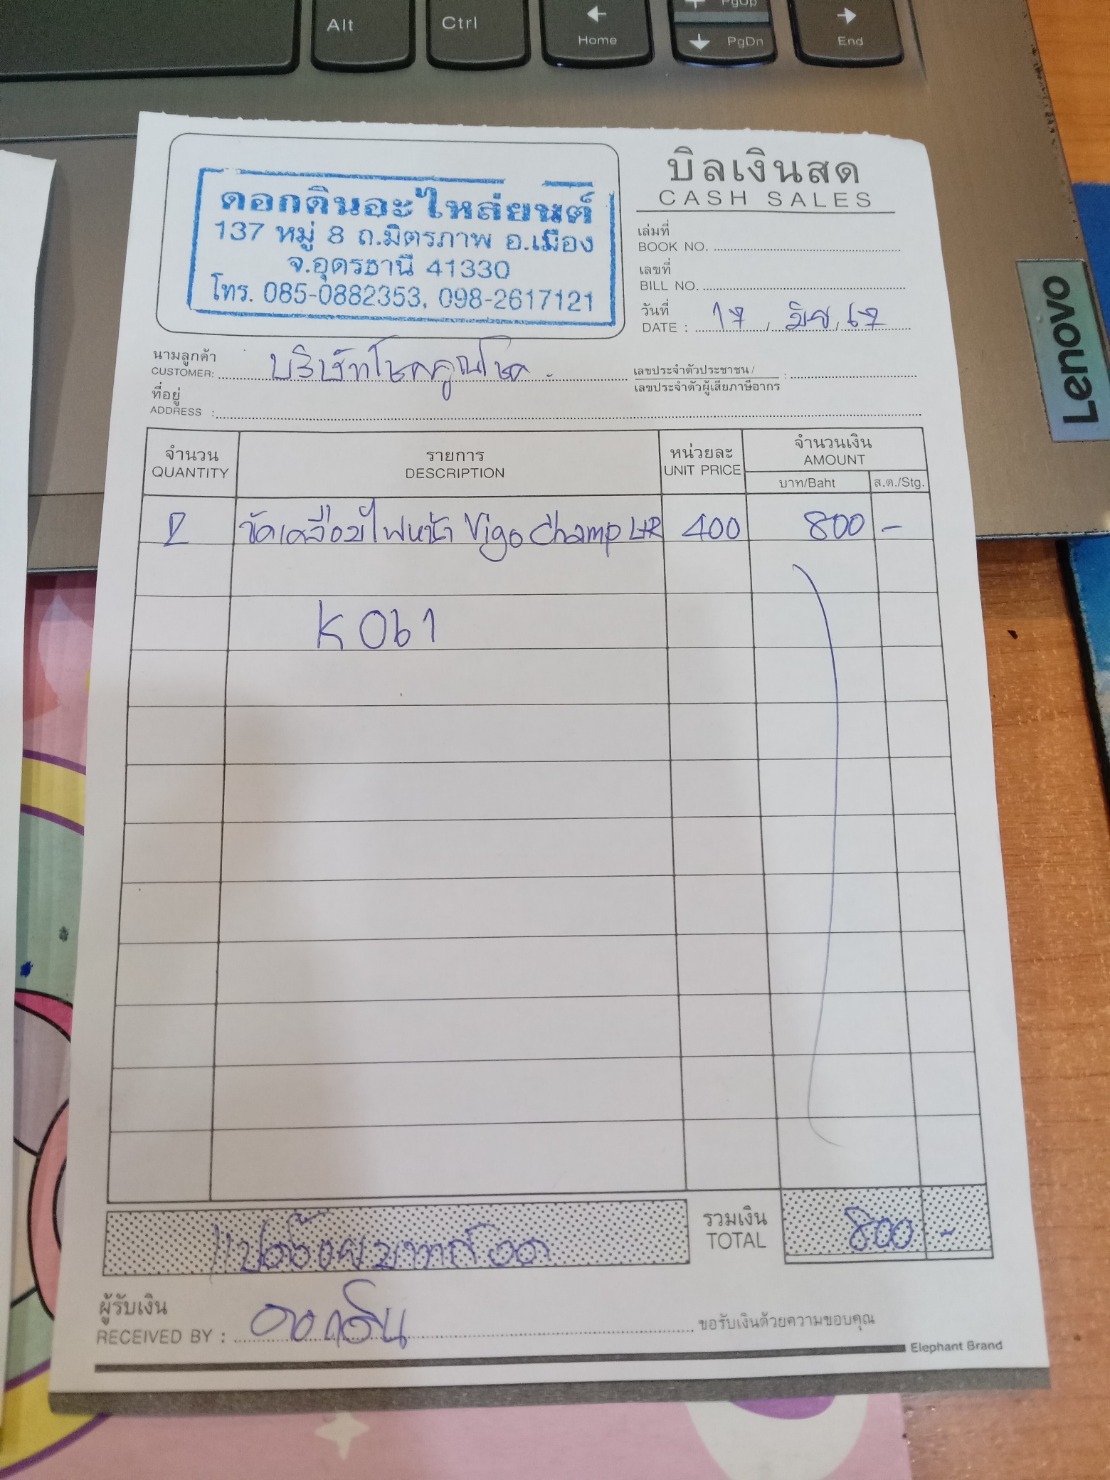 Alt
Ctrl
Home
PgUp
PgDn
End
Lenovo
ดอกดินอะไหล่ยนต์
137 หมู่ 8 ถ.มิตรภาพ อ.เมือง
จ.อุดรธานี 41330
โทร. 085-0882353, 098-2617121
บิลเงินสด
CASH SALES
เล่มที่
BOOK NO.
เลขที่
BILL NO.
วันที่
DATE : 17 / มิย / 67
นามลูกค้า
CUSTOMER: บริษัทโชคคูณโชค
เลขประจำตัวประชาชน /
เลขประจำตัวผู้เสียภาษีอากร :
ที่อยู่
ADDRESS :
จำนวน
QUANTITY
รายการ
DESCRIPTION
หน่วยละ
UNIT PRICE
จำนวนเงิน
AMOUNT
บาท/Baht
ส.ต./Stg.
2 ขัดเคลือบไฟหน้า Vigo Champ LHR 400 800 -
K Ob1
แปดร้อยบาทถ้วน
รวมเงิน
TOTAL
800 -
ผู้รับเงิน
RECEIVED BY : ดอกดิน
ขอรับเงินด้วยความขอบคุณ
Elephant Brand